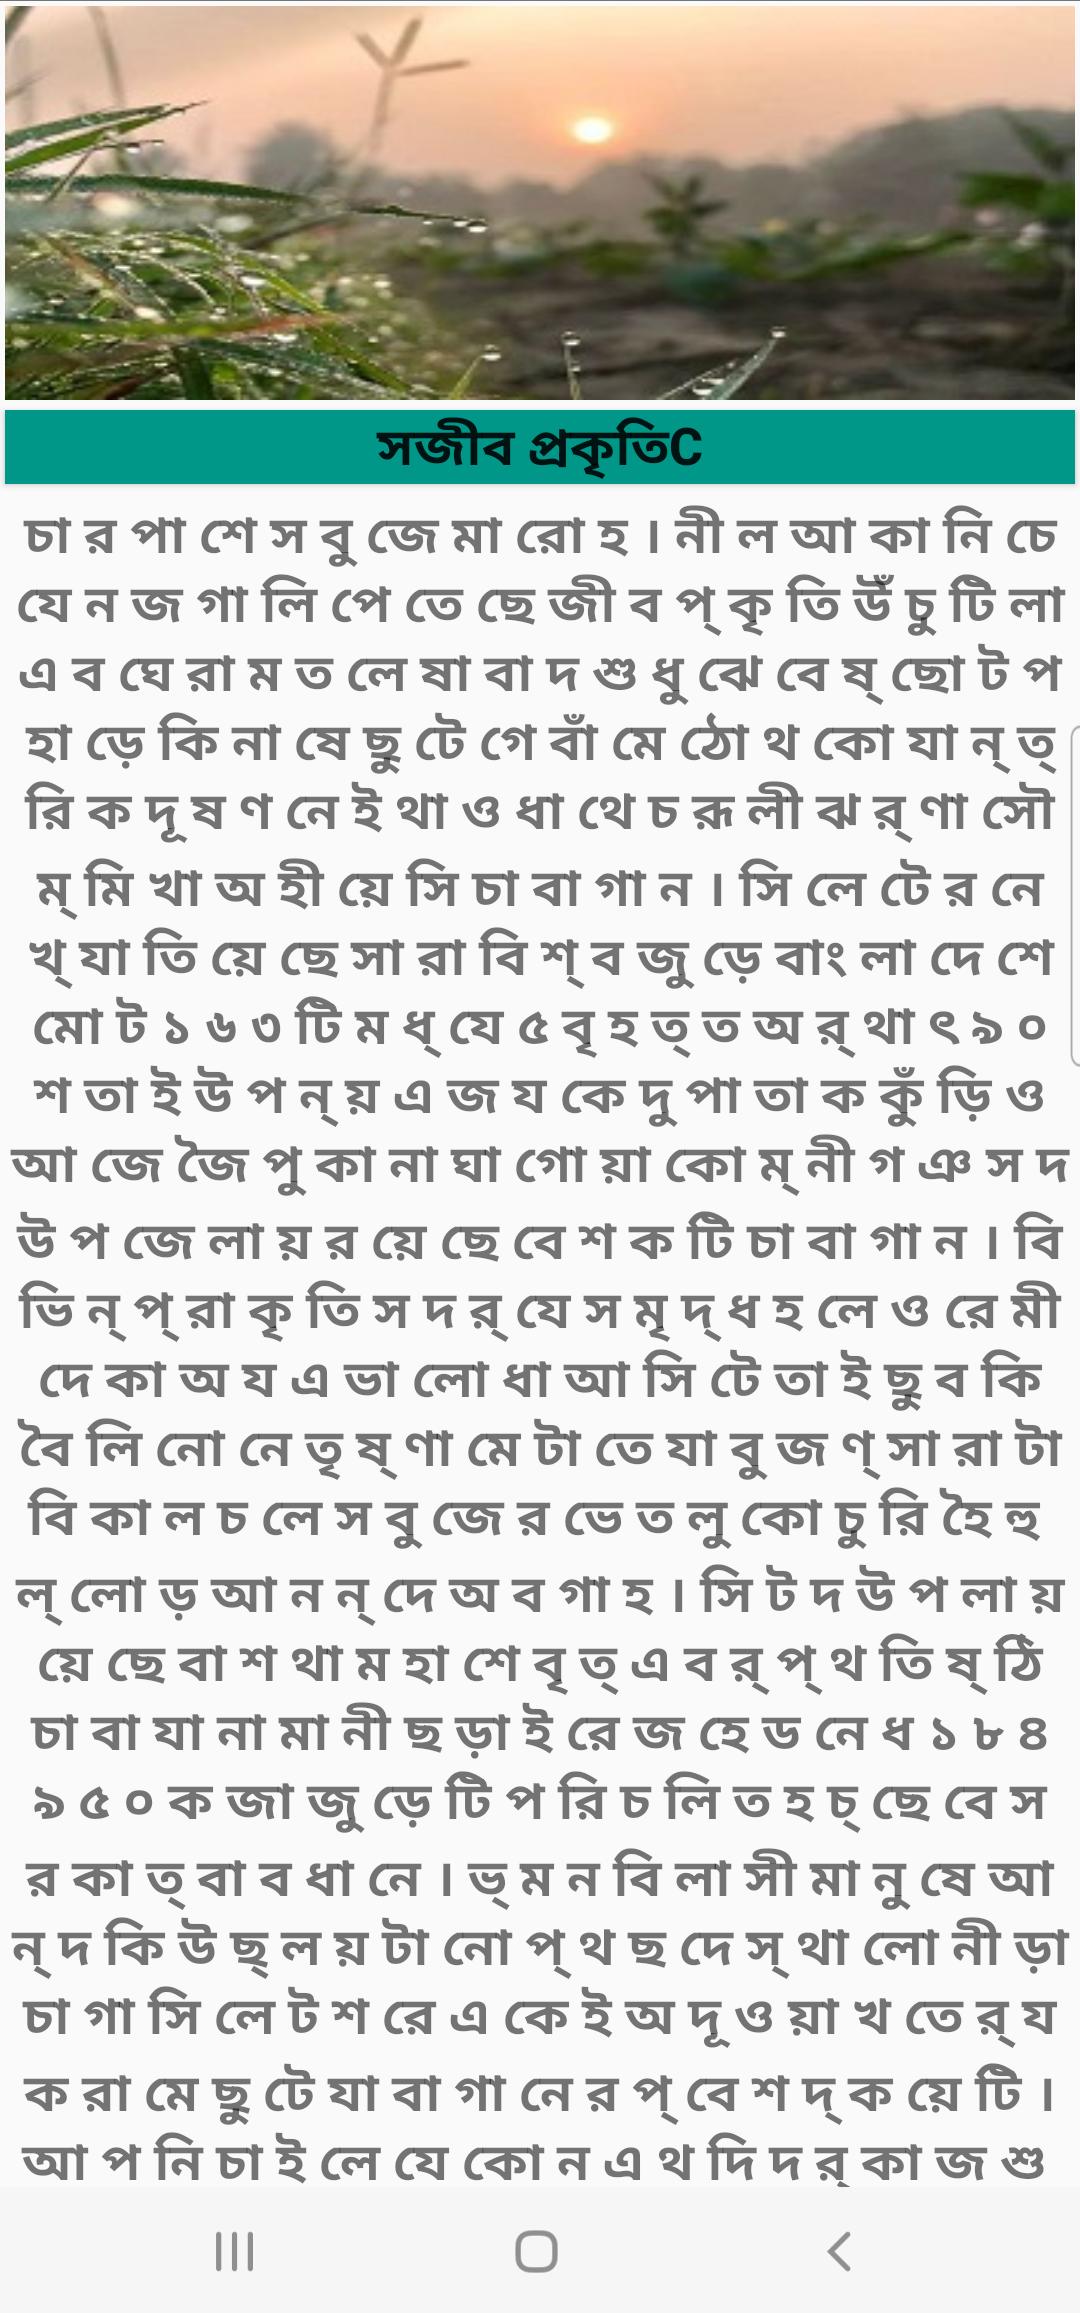 সজীব প্রকৃতিC
চা র পা শে স বু জে মা রো হ । নী ল আ কা নি চে
যে ন জ গা লি পে তে ছে জী ব প্ কৃ তি উঁ চু টি লা
এ ব ঘে রা ম ত লে ষা বা দ শু ধু ঝে বে ষ্ ছো ট প
হা ড়ে কি না ষে ছু টে গে বাঁ মে ঠো থ কো যা ন্ ত্
রি ক দূ ষ ণ নে ই থা ও ধা থে চ রূ লী ঝ র্ ণা সৌ
ম্ মি খা অ হী য়ে সি চা বা গা ন । সি লে টে র নে
খ্ যা তি য়ে ছে সা রা বি শ্ ব জু ড়ে বাং লা দে শে
মো ট ১ ৬ ৩ টি ম ধ্ যে ৫ বৃ হ ত্ ত অ র্ থা ৎ ৯ ০
শ তা ই উ প ন্ য় এ জ য কে দু পা তা ক কুঁ ড়ি ও
আ জে জৈ পু কা না ঘা গো য়া কো ম্ নী গ ঞ স দ
উ প জে লা য় র য়ে ছে বে শ ক টি চা বা গা ন । বি
ভি ন্ প্ রা কৃ তি স দ র্ যে স মৃ দ্ ধ হ লে ও রে মী
দে কা অ য এ ভা লো ধা আ সি টে তা ই ছু ব কি
বৈ লি নো নে তৃ ষ্ ণা মে টা তে যা বু জ ণ্ সা রা টা
বি কা ল চ লে স বু জে র ভে ত লু কো চু রি হৈ হু
ল্ লো ড় আ ন ন্ দে অ ব গা হ । সি ট দ উ প লা য়
য়ে ছে বা শ থা ম হা শে বৃ ত্ এ ব র্ প্ থ তি ষ্ ঠি
চা বা যা না মা নী ছ ড়া ই রে জ হে ড নে ধ ১ ৮ ৪
৯ ৫ ০ ক জা জু ড়ে টি প রি চ লি ত হ চ্ ছে বে স
র কা ত্ বা ব ধা নে । ভ্ ম ন বি লা সী মা নু ষে আ
ন্ দ কি উ ছ্ ল য় টা নো প্ থ ছ দে স্ থা লো নী ড়া
চা গা সি লে ট শ রে এ কে ই অ দূ ও য়া খ তে র্ য
ক রা মে ছু টে যা বা গা নে র প্ বে শ দ্ ক য়ে টি ।
আ প নি চা ই লে যে কো ন এ থ দি দ র্ কা জ শু